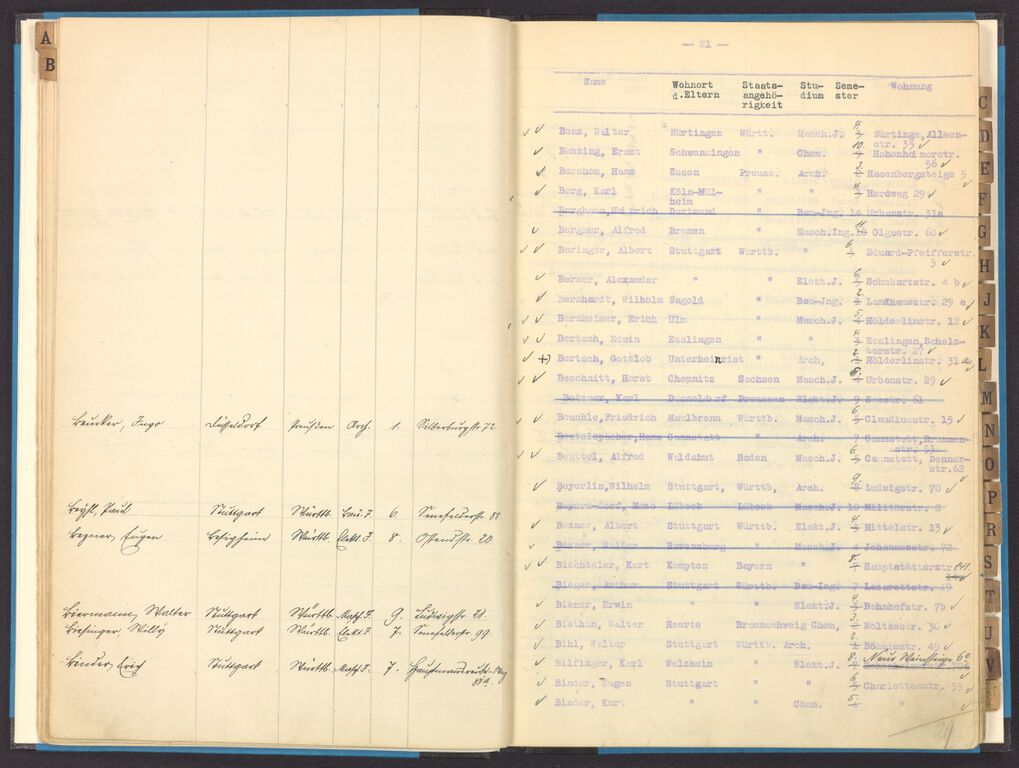 A
B
Beucker, Ingo Düsseldorf Preußen Arch. 1. Silberburgstr. 72
Beyhl, Paul Stuttgart Württb. Bau-J. 6. Senefelderstr. 88
Bezner, Eugen Besigheim Württb. Elekt. J. 8. Ostendstr. 20
Biermann, Walter Stuttgart Württb. Masch. J. 9. Ludwigstr. 21.
Biesinger, Willy Stuttgart Württb. Elekt. J. 7. Senefelderstr. 99.
Binder, Erich Stuttgart Württb. Masch. J. 7.
— 21 —
Name Wohnort Staats- Stu- Seme- Wohnung
d.Eltern angehö- dium ster
rigkeit
Benz, Walter Nürtingen Württ. Masch.J. 4 Nürtingen, Alleen-
str. 35
Benzing, Ernst Schwenningen " Chem. 10 Hohenheimerstr.
56
Berchem, Hans Essen Preuss. Arch. 3 Hasenbergsteige 5
Berg, Karl Köln-Mül- " " Herdweg 29
heim
Berghaus, Heinrich Dortmund Bau-Ing. 14 Urbanstr. 31a
Berger, Alfred Bremen Masch.Ing. 11 Olgastr. 60
Beringer, Albert Stuttgart Württb. " 6 Eduard-Pfeifferstr.
3
Berner, Alexander " " Elekt.J. 6 Schubartstr. 4 b
Bernhardt, Wilhelm Nagold " Bau-Ing. 2 Landhausstr. 29 a
Bernheimer, Erich Ulm " Masch.J. 5 Hölderlinstr. 12
Bertsch, Edwin Esslingen " " 4 Esslingen, Schels-
terstr. 27
Bertsch, Gottlob Unterheinriet " Arch, 2 Hölderlinstr. 31
Beschnitt, Horst Chemnitz Sachsen Masch.J. 6 Urbanstr. 29
Betzner, Karl Düsseldorf Preussen Elekt.J. 9 Seestr. 61
Beuchle, Friedrich Maulbronn Württb. Masch.J. 6 Claudiusstr. 15
Beutelspacher, Hans Cannstatt " Arch. 7 Cannstatt, Brunnen-
str. 53
Beuttel, Alfred Waldshut Baden Masch.J. 6 Cannstatt, Denner-
str.62
Bayerlin, Wilhelm Stuttgart, Württb, Arch. 9 Ludwigstr. 70
Beyersdorf, Meno Lübeck Lübeck Masch.J. 10 Militärstr. 2
Bezner, Albert Stuttgart Württb. Elekt.J. 4 Mittelstr. 13
Bezner, Walter Ravensburg " Masch.J. 4 Johannesstr. 72
Biechteler, Kurt Kempten Bayern " 8 Hauptstätterstr.
Bieger, Arthur Stuttgart Württb. Bau-Ing. 7 Lazarettstr. 19
Biener, Erwin " " Elekt.J. 4 Bahnhofstr. 7b
Biethan, Walter Heerte Braunschweig Chem, 3 Moltkestr. 36
Bihl, Walter Stuttgart Württb. Arch. Böheimstr. 45
Bilfinger, Karl Welzheim " Elekt.J. 8 Neue Weinsteige 6a
Binder, Eugen Stuttgart " " 6 Charlottenstr. 33
Binder, Kurt " " Chem. 5 "
C
D
E
F
G
H
J
K
L
M
N
O
P
R
S
T
U
V